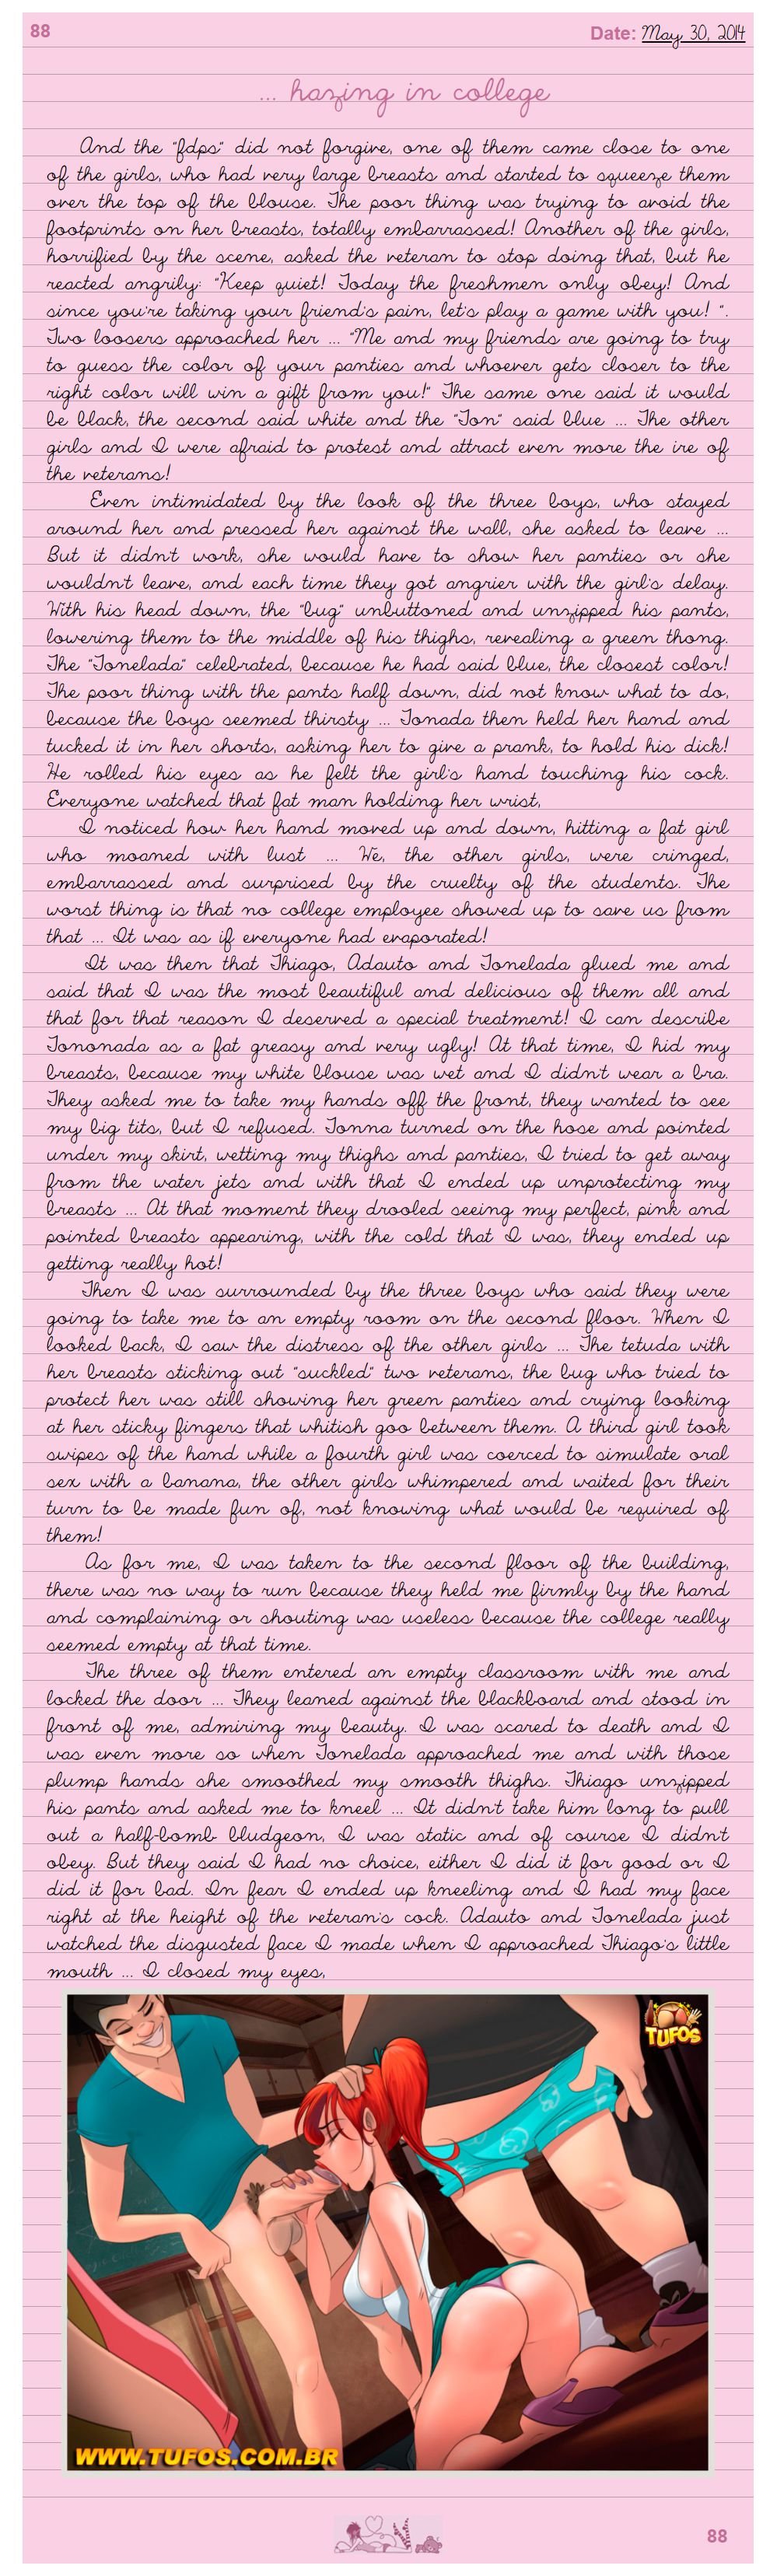 88
Date: May 30, 2014
... hazing in college
And the "fdps" did not forgive, one of them came close to one
of the girls, who had very large breasts and started to squeeze them
over the top of the blouse. The poor thing was trying to avoid the
footprints on her breasts, totally embarrassed! Another of the girls,
horrified by the scene, asked the veteran to stop doing that, but he
reacted angrily: "Keep quiet! Today the freshmen only obey! And
since you're taking your friend's pain, let's play a game with you! ".
Two loosers approached her ... "Me and my friends are going to try
to guess the color of your panties and whoever gets closer to the
right color will win a gift from you!" The same one said it would
be black, the second said white and the "Ton" said blue ... The other
girls and I were afraid to protest and attract even more the ire of
the veterans!
Even intimidated by the look of the three boys, who stayed
around her and pressed her against the wall, she asked to leave ...
But it didn't work, she would have to show her panties or she
wouldn't leave, and each time they got angrier with the girl's delay.
With his head down, the "bug" unbuttoned and unzipped his pants,
lowering them to the middle of his thighs, revealing a green thong.
The "Tonelada" celebrated, because he had said blue, the closest color!
The poor thing with the pants half down, did not know what to do,
because the boys seemed thirsty ... Tonada then held her hand and
tucked it in her shorts, asking her to give a prank, to hold his dick!
He rolled his eyes as he felt the girl's hand touching his cock.
Everyone watched that fat man holding her wrist,
I noticed how her hand moved up and down, hitting a fat girl
who moaned with lust ... We, the other girls, were cringed,
embarrassed and surprised by the cruelty of the students. The
worst thing is that no college employee showed up to save us from
that ... It was as if everyone had evaporated!
It was then that Thiago, Adauto and Tonelada glued me and
said that I was the most beautiful and delicious of them all and
that for that reason I deserved a special treatment! I can describe
Tononada as a fat greasy and very ugly! At that time, I hid my
breasts, because my white blouse was wet and I didn't wear a bra.
They asked me to take my hands off the front, they wanted to see
my big tits, but I refused. Tonna turned on the hose and pointed
under my skirt, wetting my thighs and panties, I tried to get away
from the water jets and with that I ended up unprotecting my
breasts ... At that moment they drooled seeing my perfect, pink and
pointed breasts appearing, with the cold that I was, they ended up
getting really hot!
Then I was surrounded by the three boys who said they were
going to take me to an empty room on the second floor. When I
looked back, I saw the distress of the other girls ... The tetuda with
her breasts sticking out "suckled" two veterans, the bug who tried to
protect her was still showing her green panties and crying looking
at her sticky fingers that whitish goo between them. A third girl took
swipes of the hand while a fourth girl was coerced to simulate oral
sex with a banana, the other girls whimpered and waited for their
turn to be made fun of, not knowing what would be required of
them!
As for me, I was taken to the second floor of the building,
there was no way to run because they held me firmly by the hand
and complaining or shouting was useless because the college really
seemed empty at that time.
The three of them entered an empty classroom with me and
locked the door ... They leaned against the blackboard and stood in
front of me, admiring my beauty. I was scared to death and I
was even more so when Tonelada approached me and with those
plump hands she smoothed my smooth thighs. Thiago unzipped
his pants and asked me to kneel ... It didn't take him long to pull
out a half-bomb bludgeon, I was static and of course I didn't
obey. But they said I had no choice, either I did it for good or I
did it for bad. In fear I ended up kneeling and I had my face
right at the height of the veteran's cock. Adauto and Tonelada just
watched the disgusted face I made when I approached Thiago's little
mouth ... I closed my eyes,
TUFOS
WWW.TUFOS.COM.BR
88